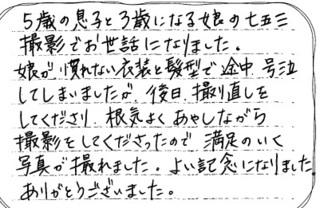 5歳の息子と3歳になる娘の七五三
撮影でお世話になりました。
娘が慣れない衣装と髪型で途中号泣
してしまいましたが、後日、撮り直しを
してくださり、根気よくあやしながら
撮影をしてくださったので、満足のいく
写真が撮れました。よい記念になりました。
ありがとうございました。